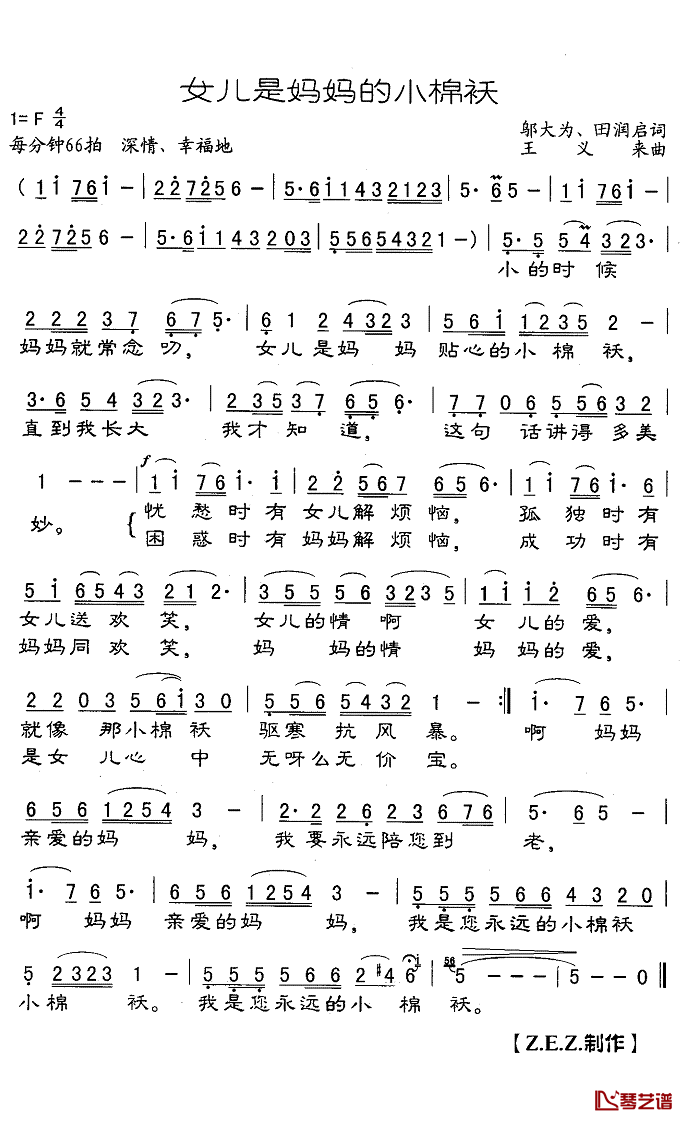 女儿是妈妈的小棉袄
1=F 4/4
每分钟66拍 深情、幸福地
邬大为、田润启词
王义来曲
(1 i 7 6 i· | 2 2 7 2 5 6 – | 5·6 i 1 4 3 2 1 2 3 | 5·6 6 5 – | 1 i 7 6 i· |
2 2 7 2 5 6 – | 5·6 i 1 4 3 2 0 3 | 5 5 6 5 4 3 2 1 – ) | 5·5 5 4 3 2 3· |
小的时候
2 2 2 2 3 7 6 7 5· | 6 1 2 4 3 2 3 | 5 6 i 1 2 3 5 2 – |
妈妈就常念叨, 女儿是妈妈 贴心的小棉袄,
3·6 5 4 3 2 3· | 2 3 5 3 7 6 5 6· | 7 7 0 6 5 5 6 3 2 |
直到我长大 我才知道, 这句话讲得多美
1 – – – | f 1 i 7 6 i· i | 2 2 5 6 7 6 5 6· | 1 i 7 6 i· 6 |
妙。 { 忧愁时有女儿解烦恼, 孤独时有
困惑时有妈妈解烦恼, 成功时有
5 i 6 5 4 3 2 1 2· | 3 5 5 5 6 3 2 3 5 | 1 i i 2 6 5 6· |
女儿送欢笑, 女儿的情啊 女儿的爱,
妈妈同欢笑, 妈妈的情 妈妈的爱,
2 2 0 3 5 6 i 3 0 | 5 5 6 5 4 3 2 1 – :‖ i· 7 6 5· |
就像那小棉袄 驱寒抗风暴。 啊妈妈
是女儿心中 无呀么无价宝。
6 5 6 1 2 5 4 3 – | 2· 2 2 6 2 3 6 7 6 | 5· 6 5 – |
亲爱的妈妈, 我要永远陪您到老,
i· 7 6 5· | 6 5 6 1 2 5 4 3 – | 5 5 5 5 6 6 4 3 2 0 |
啊妈妈 亲爱的妈妈, 我是您永远的小棉袄
5 2 3 2 3 1 – | 5 5 5 5 6 6 2 #4 6 i | 56 5 – – – | 5 – – 0 ‖
小棉袄。我是您永远的小棉袄。
【Z.E.Z.制作】
琴艺谱